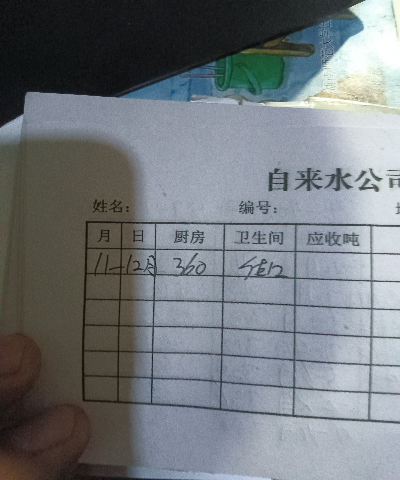 自来水公司
姓名： 编号：
月 日 厨房 卫生间 应收吨
11-12月 360